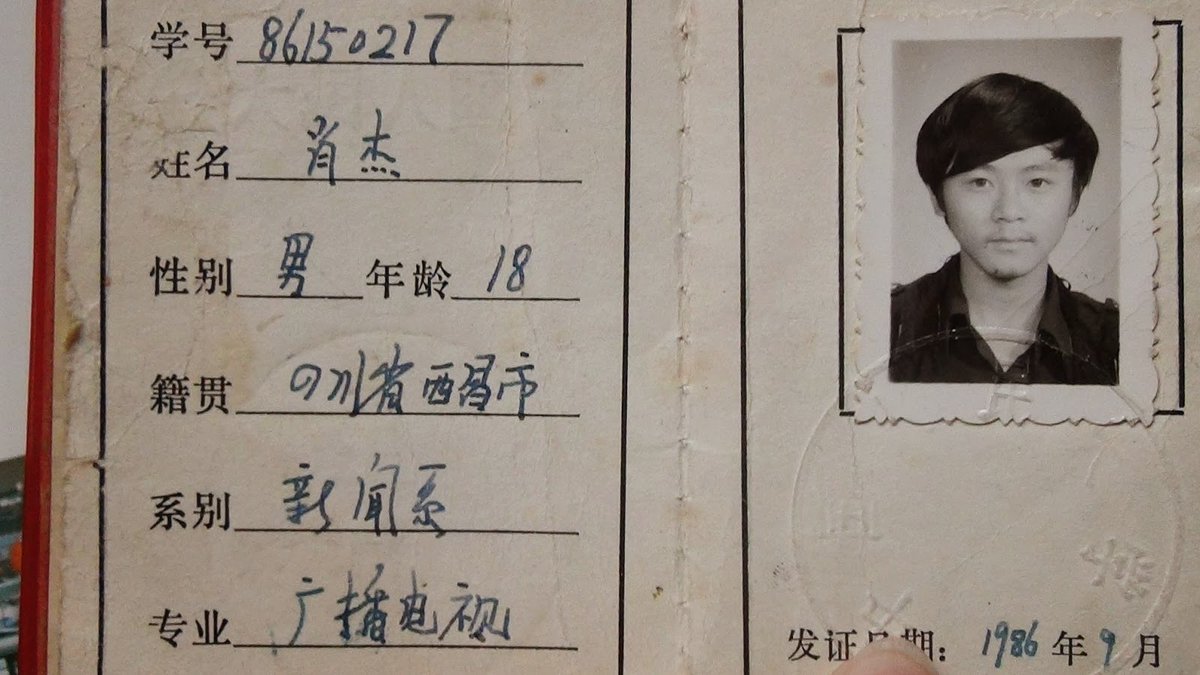 学号 86150217
姓名 肖杰
性别 男 年龄 18
籍贯 四川省西昌市
系别 新闻系
专业 广播电视
发证日期：1986年9月